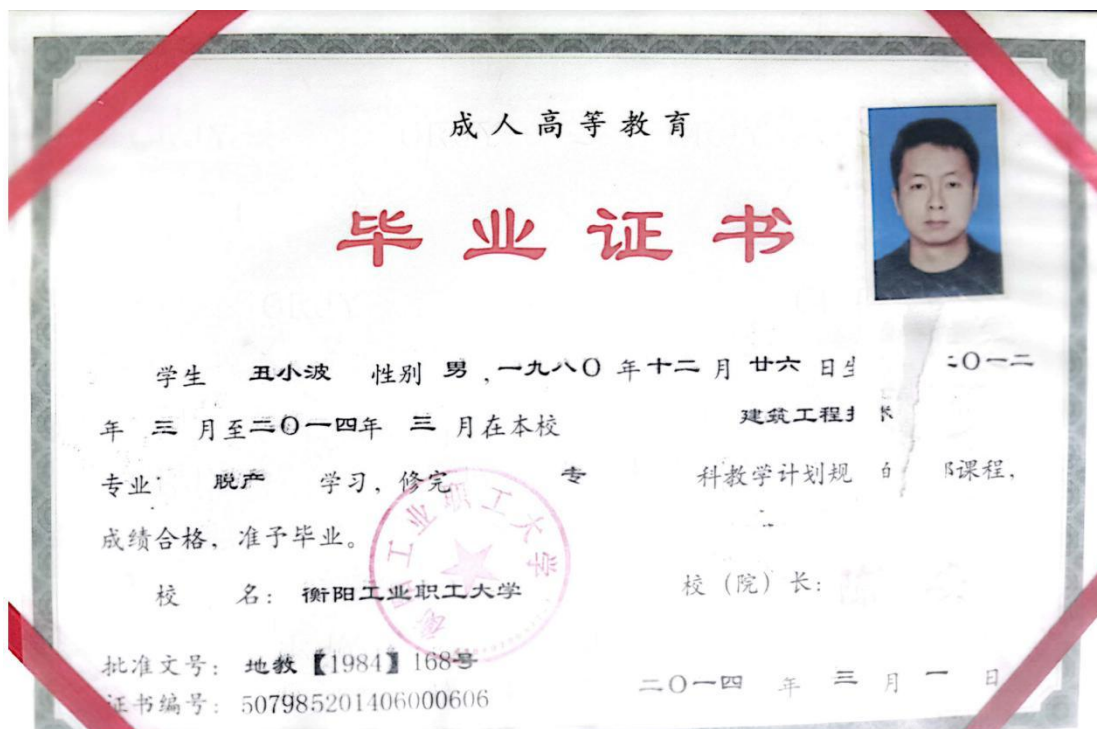 成人高等教育
毕业证书
学生 丑小波 性别 男 , 一九八〇 年 十二 月 廿六 日生 二〇一二
年 三 月至 二〇一四 年 三 月在本校 建筑工程技术
专业 脱产 学习，修完 专 科教学计划规 的 部课程，
成绩合格，准予毕业。
校 名： 衡阳工业职工大学 校（院）长：
批准文号： 地教【1984】168号
证书编号： 507985201406000606
二〇一四 年 三 月 一 日
衡阳工业职工大学